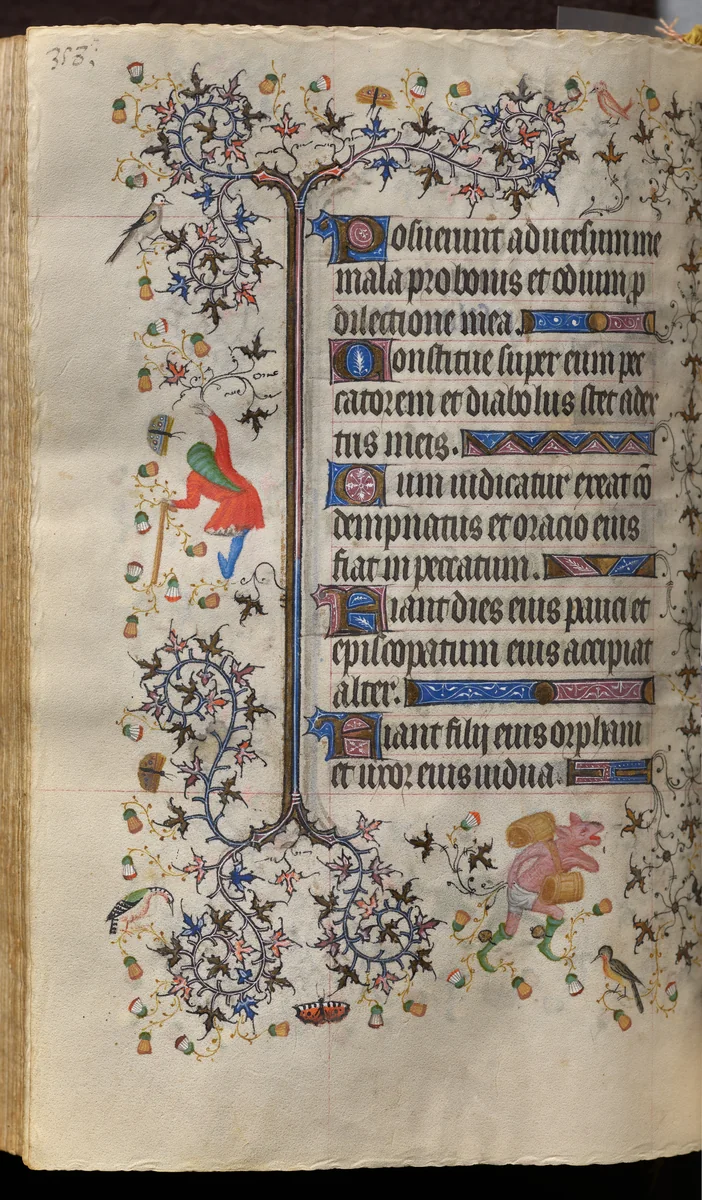 353
Posuerunt adversum me
mala pro bonis et odium p
dilectione mea.
Constitue super eum pec
catorem et diabolus stet a dex
tris meis.
Cum iudicatur exeat cō
dempnatus et oracio eius
fiat in peccatum.
Fiant dies eius pauci et
episcopatum eius accipiat
alter.
Fiant filij eius orphani
et uxor eius uidua.